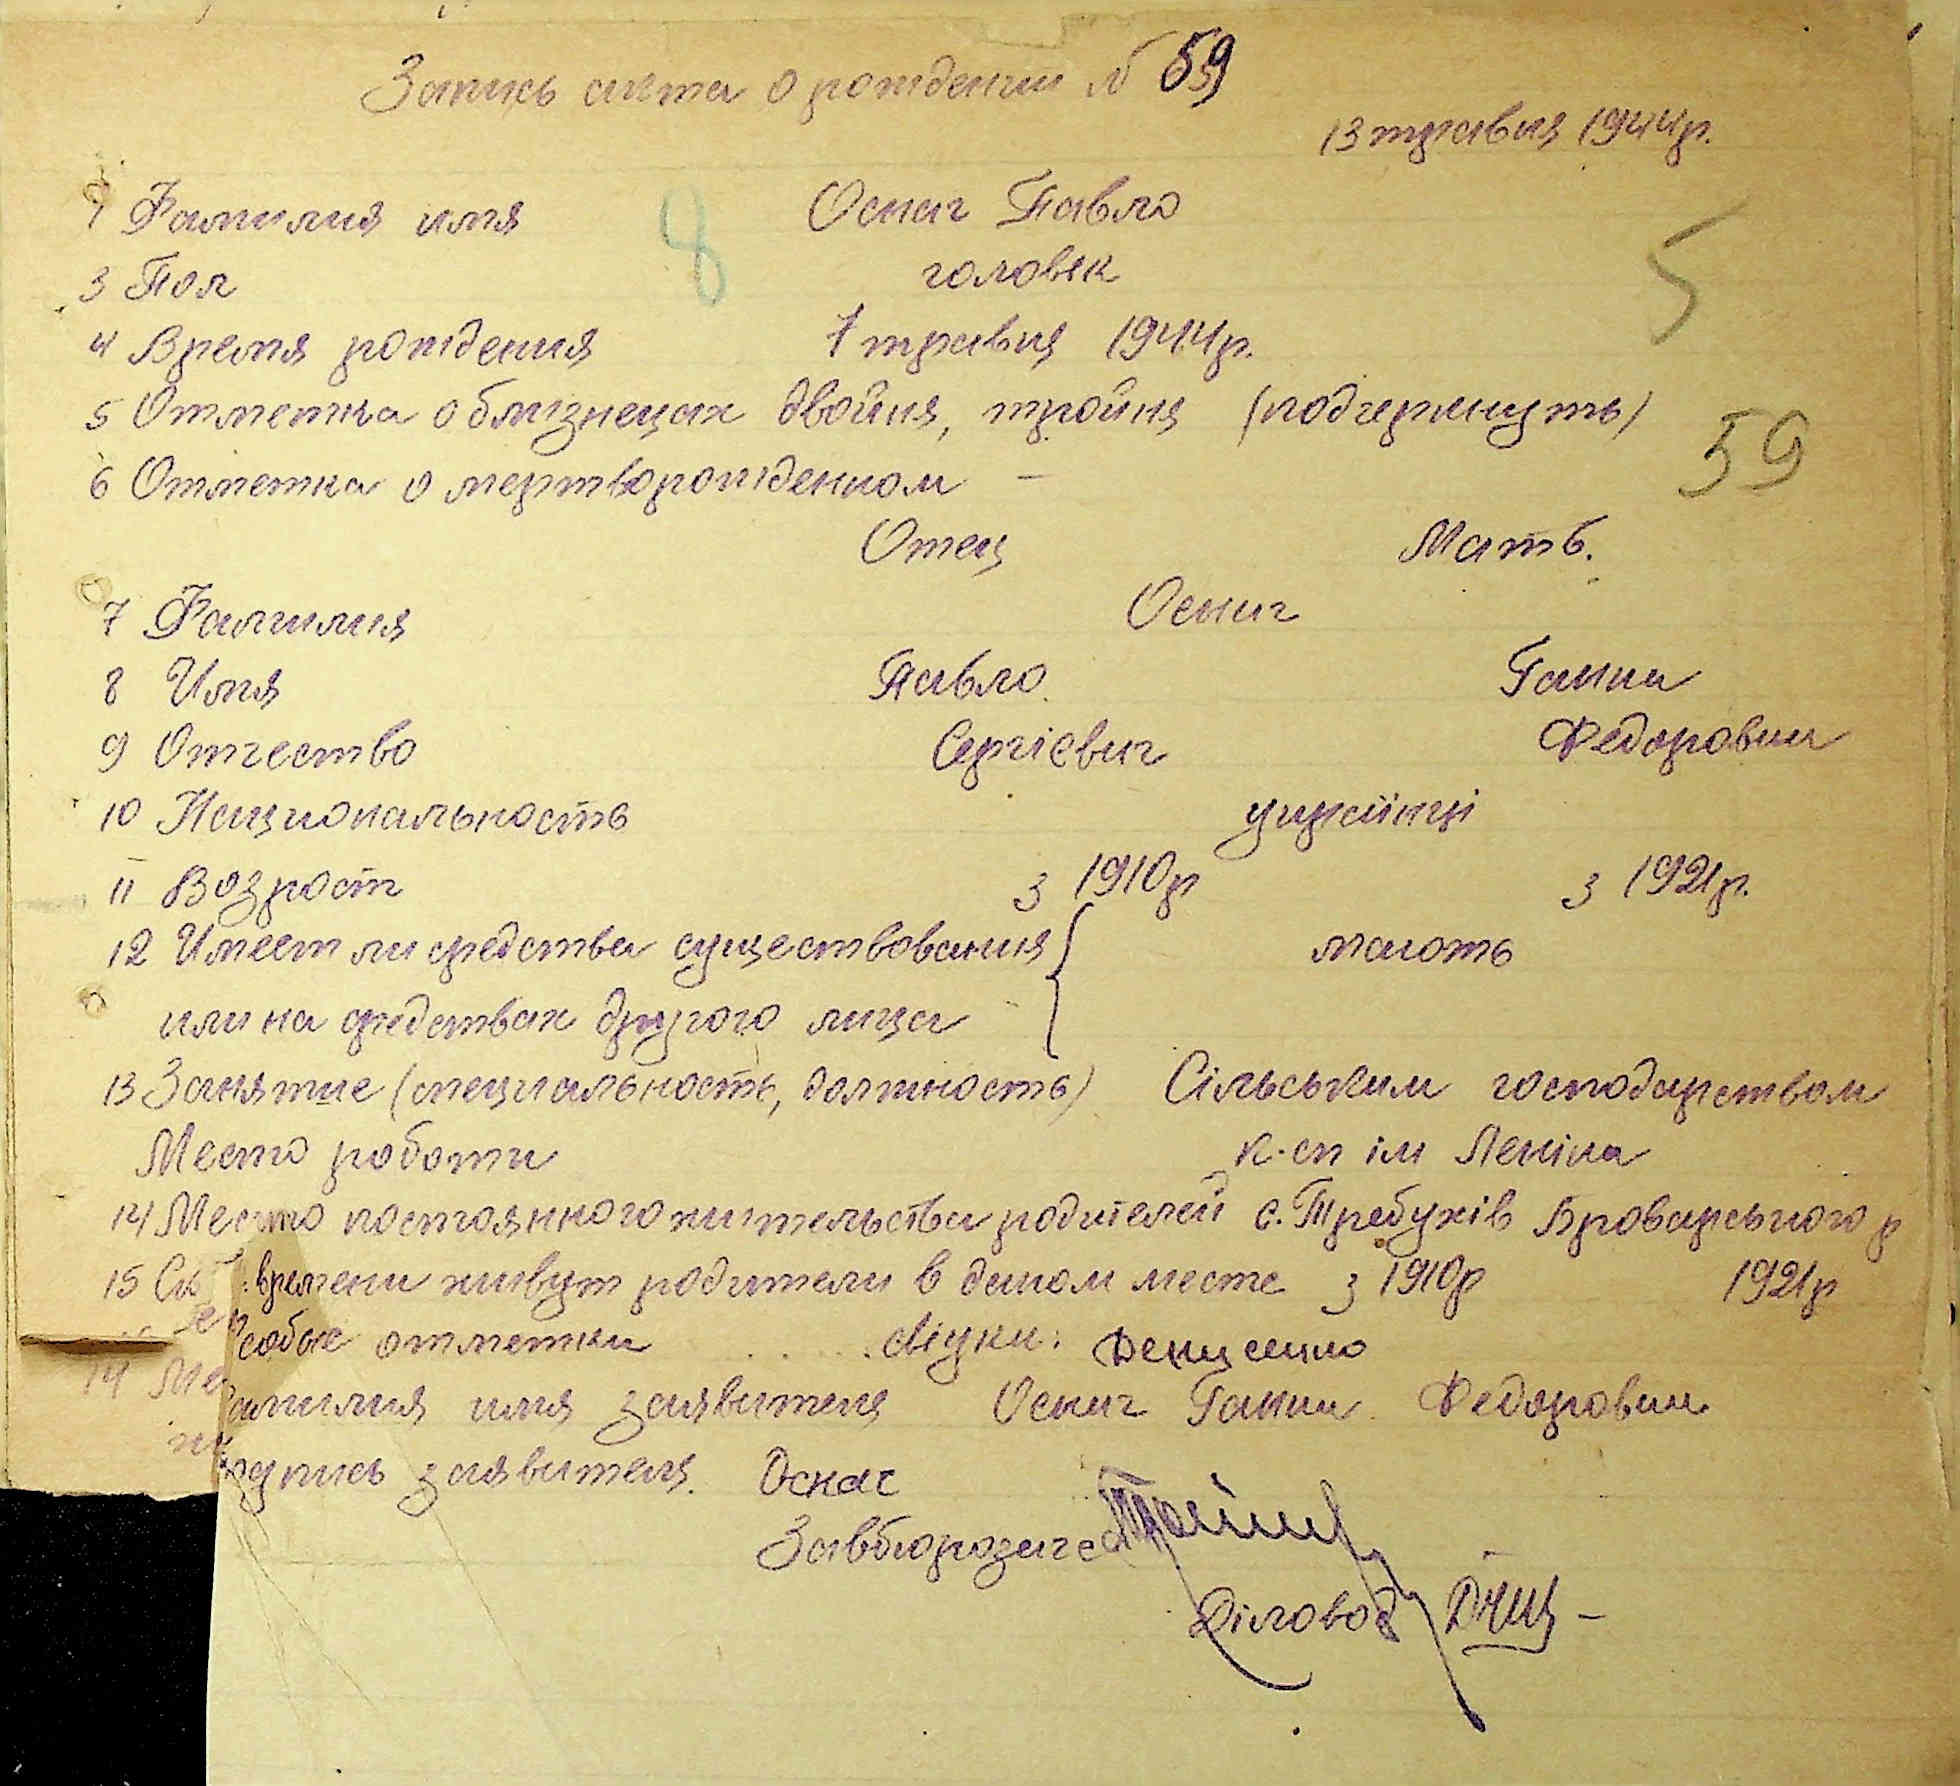 Запись акта о рождении № 59
13 травня 1944р.
1 Фамилия имя Оснач Павло
8
3 Пол чоловік
5
4 Время рождения 7 травня 1944р.
5 Отметка о близнецах двойня, тройня (подчеркнуть)
59
6 Отметка о мертворожденном –
Отец Мать.
7 Фамилия Оснач
8 Имя Павло Ганна
9 Отчество Сергієвич Федоровна
10 Национальность українці
11 Возраст з 1910р з 1921р.
12 Имеет ли средства существования мають
или на средствах другого лица
13 Занятие (специальность, должность) Сільським господарством
Место роботи к-сп ім Леніна
14 Место постоянного жительства родителей с. Требухів Броварського р
15 времени живут родители в даном месте з 1910р 1921р
отметки свідки: Денисенко
имя заявителя Оснач Ганна Федоровна
заявителя. Оснач
Завбюрозагс
Діловод